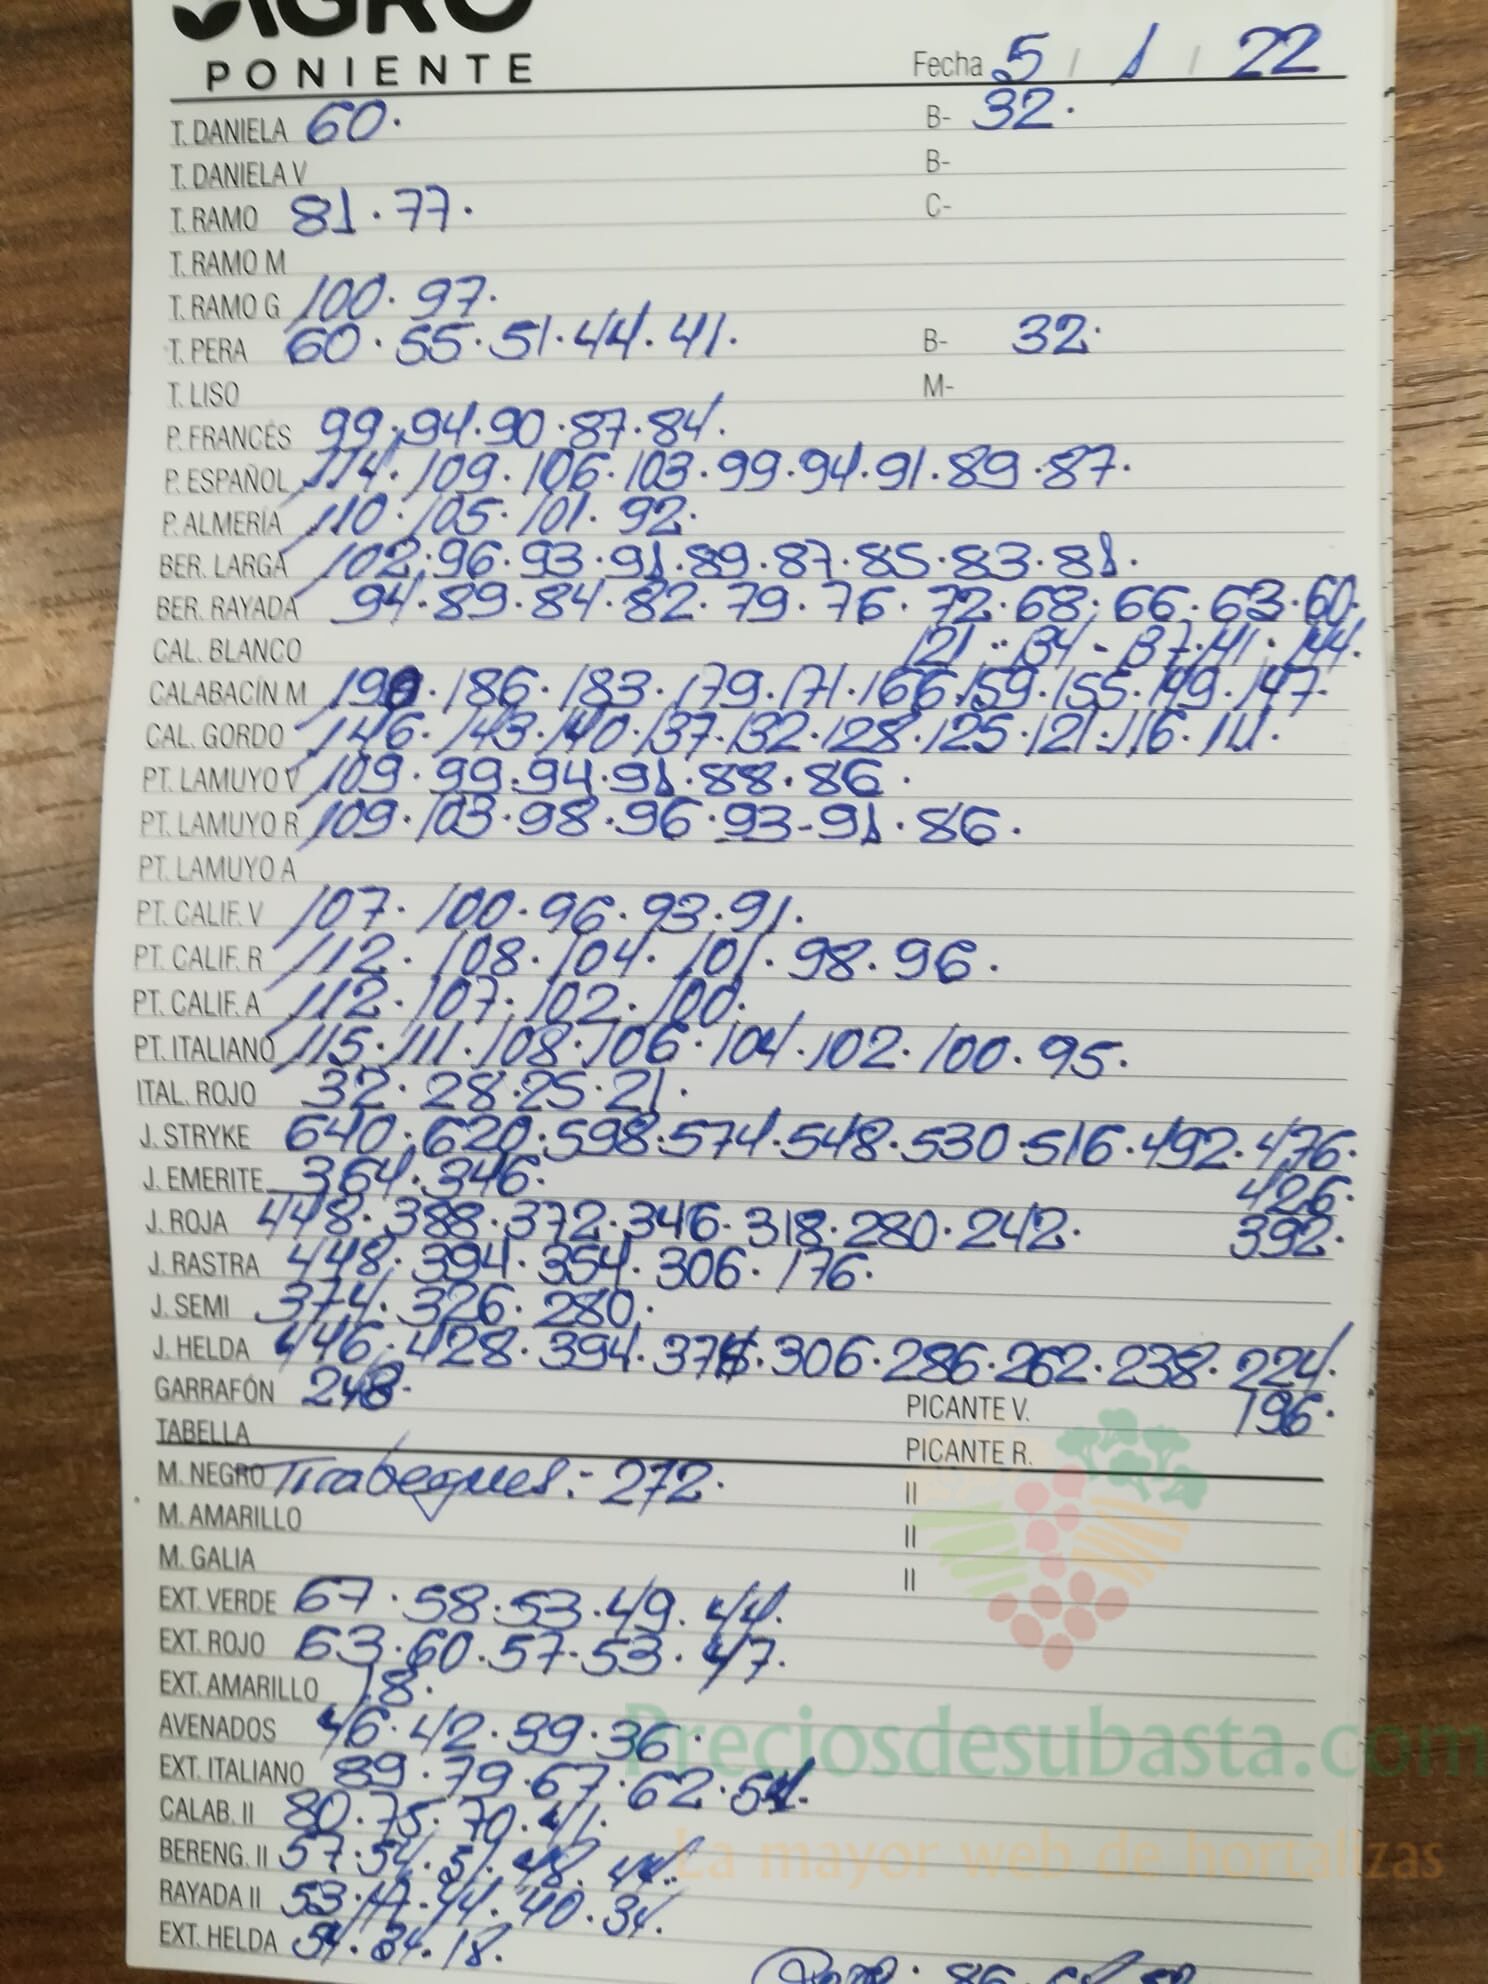 AGRO
PONIENTE
Fecha 5 / 1 / 22
T. DANIELA 60. B- 32.
T. DANIELA V B-
T. RAMO 81.77. C-
T. RAMO M
T. RAMO G 100.97.
T. PERA 60.55.51.44.41. B- 32.
T. LISO M-
P. FRANCÉS 99.94.90.87.84.
P. ESPAÑOL 114.109.106.103.99.94.91.89.87.
P. ALMERÍA 110.105.101.92.
BER. LARGA 102.96.93.91.89.87.85.83.81.
BER. RAYADA 94.89.84.82.79.76.72.68.66.63.60.
CAL. BLANCO 121.134-137.141.144.
CALABACÍN M 190.186.183.179.171.166.159.155.149.147.
CAL. GORDO 146.143.140.137.132.128.125.121.116.111.
PT. LAMUYO V 109.99.94.91.88.86.
PT. LAMUYO R 109.103.98.96.93-91.86.
PT. LAMUYO A
PT. CALIF. V 107.100.96.93.91.
PT. CALIF. R 112.108.104.101.98.96.
PT. CALIF. A 112.107.102.100.
PT. ITALIANO 115.111.108.106.104.102.100.95.
ITAL. ROJO 32.28.25.21.
J. STRYKE 640.620.598.574.548.530.516.492.476.
J. EMERITE 364.346. 426.
J. ROJA 448.388.372.346.318.280.242. 392.
J. RASTRA 448.394.354.306.176.
J. SEMI 374.326.280.
J. HELDA 446.428.394.374.306.286.262.238.224.
GARRAFÓN 248. PICANTE V. 196.
TABELLA PICANTE R.
M. NEGRO Tirabeques.- 272. II
M. AMARILLO II
M. GALIA II
EXT. VERDE 67.58.53.49.44.
EXT. ROJO 63.60.57.53.47.
EXT. AMARILLO 18.
AVENADOS 46.42.39.36.
Preciosdesubasta.com
EXT. ITALIANO 89.79.67.62.54.
CALAB. II 80.75.70.41.
BERENG. II 57.54.51.48.44.
La mayor web de hortalizas
RAYADA II 53.47.44.40.34.
EXT. HELDA 54.34.18.
86.